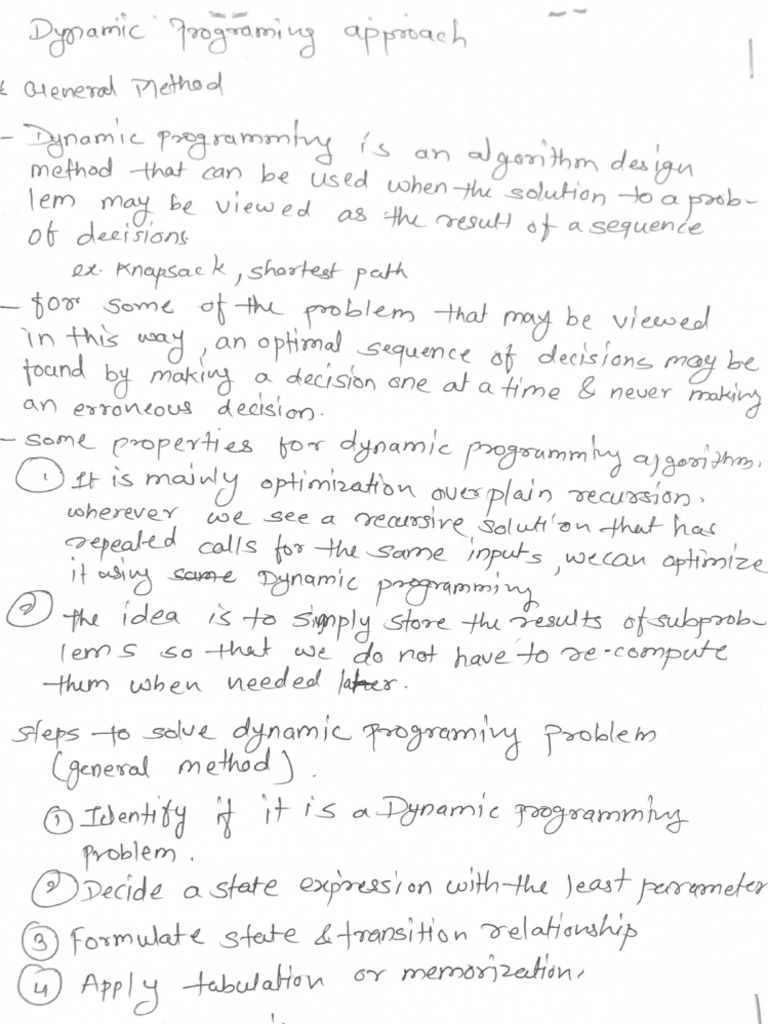 Dynamic Programing approach
General Method
- Dynamic programming is an algorithm design
method that can be used when the solution to a prob-
lem may be viewed as the result of a sequence
of decisions
ex. Knapsack, shortest path
- for some of the problem that may be viewed
in this way, an optimal sequence of decisions may be
found by making a decision one at a time & never making
an erroneous decision.
- some properties for dynamic programming algorithm.
① It is mainly optimization over plain recursion.
wherever we see a recursive solution that has
repeated calls for the same inputs, we can optimize
it using same Dynamic programming
② the idea is to simply store the results of subprob-
lems so that we do not have to re-compute
them when needed later.
steps to solve dynamic programing problem
(general method).
① Identify if it is a Dynamic programming
problem.
② Decide a state expression with the least parameter
③ Formulate state & transition relationship
④ Apply tabulation or memorization.